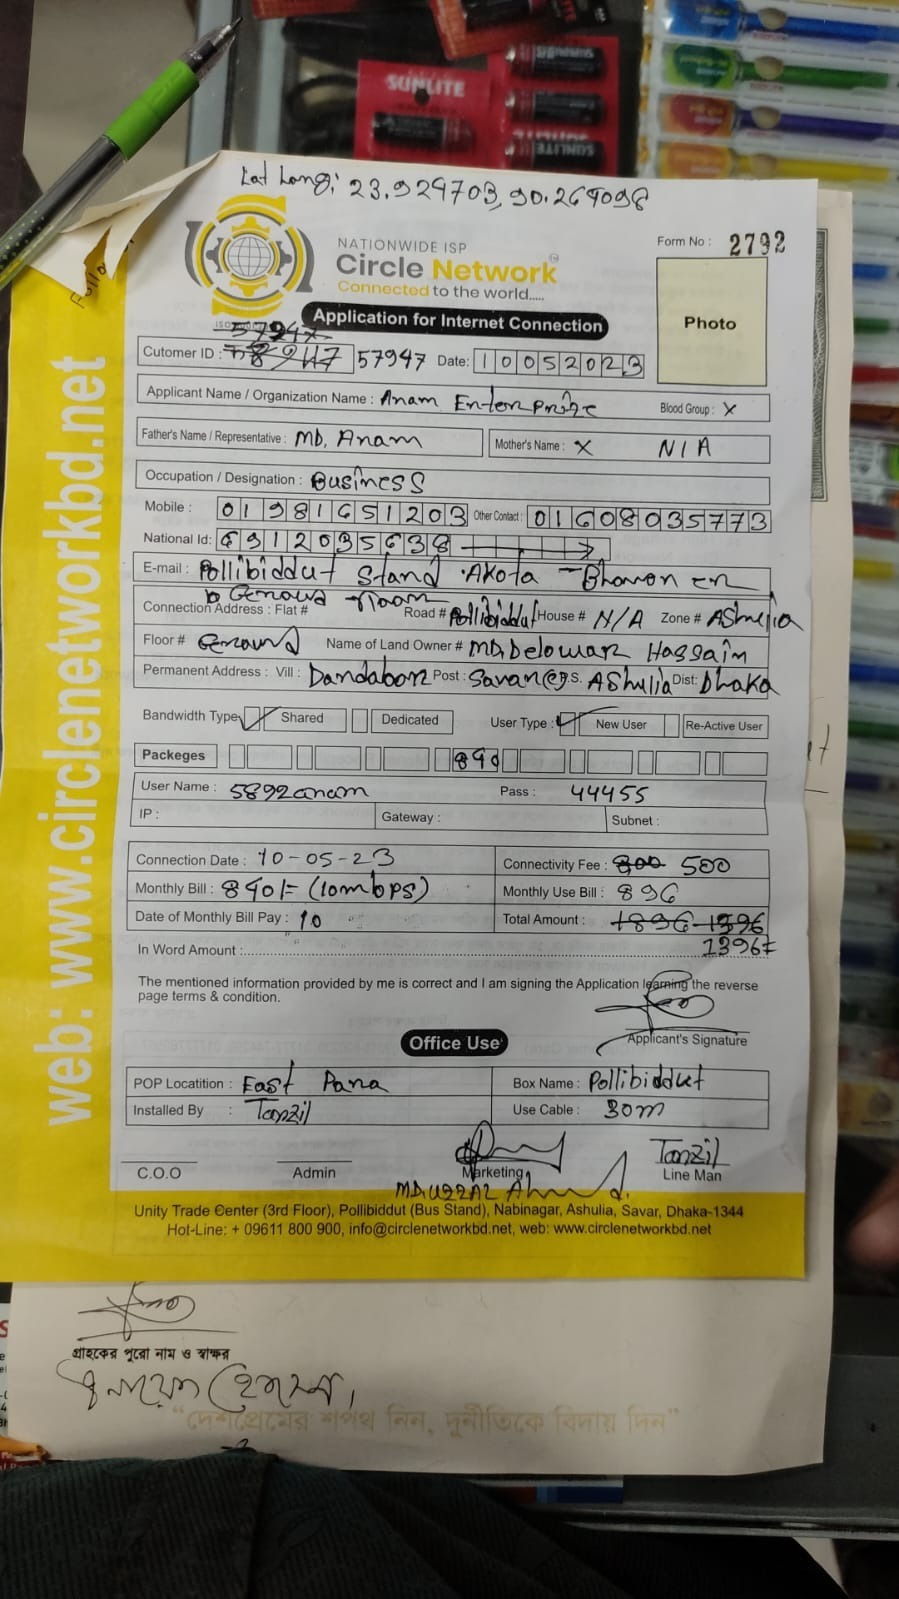 SUNLITE
SUNLITE
Lat Long: 23.929703, 90.269098
NATIONWIDE ISP
Circle Network
Connected to the world.....
Form No : 2792
Photo
Application for Internet Connection
57947
Cutomer ID : 57947 Date: 10052023
Applicant Name / Organization Name : Anam Enterprize Blood Group : X
Father's Name / Representative : MD. Anam Mother's Name : X N/A
Occupation / Designation : Business
Mobile : 01981651203 Other Contact : 01608035773
National Id: 6912035638
E-mail : Pollibiddut Stand Akota Bhavon er
Connection Address : Flat # Road # Pollibiddut House # N/A Zone # Ashulia
Floor # Ground Name of Land Owner # MD. Delowar Hossain
Permanent Address : Vill : Dandabor Post : Savar P.S. Ashulia Dist: Dhaka
Bandwidth Type Shared Dedicated User Type : New User Re-Active User
Packeges 840
User Name : 5892anam Pass : 44455
IP : Gateway : Subnet :
Connection Date : 10-05-23 Connectivity Fee : 800 500
Monthly Bill : 840/= (10mbps) Monthly Use Bill : 896
Date of Monthly Bill Pay : 10 Total Amount : 1896 1396
In Word Amount : 1396/=
The mentioned information provided by me is correct and I am signing the Application learning the reverse
page terms & condition.
Applicant's Signature
Office Use
POP Locatition : East Para Box Name : Pollibiddut
Installed By : Tanzil Use Cable : 30m
Tanzil
C.O.O Admin Marketing Line Man
Unity Trade Center (3rd Floor), Pollibiddut (Bus Stand), Nabinagar, Ashulia, Savar, Dhaka-1344
Hot-Line: + 09611 800 900, info@circlenetworkbd.net, web: www.circlenetworkbd.net
web: www.circlenetworkbd.net
গ্রাহকের পুরো নাম ও স্বাক্ষর
“দেশপ্রেমের শপথ নিন, দুর্নীতিকে বিদায় দিন”